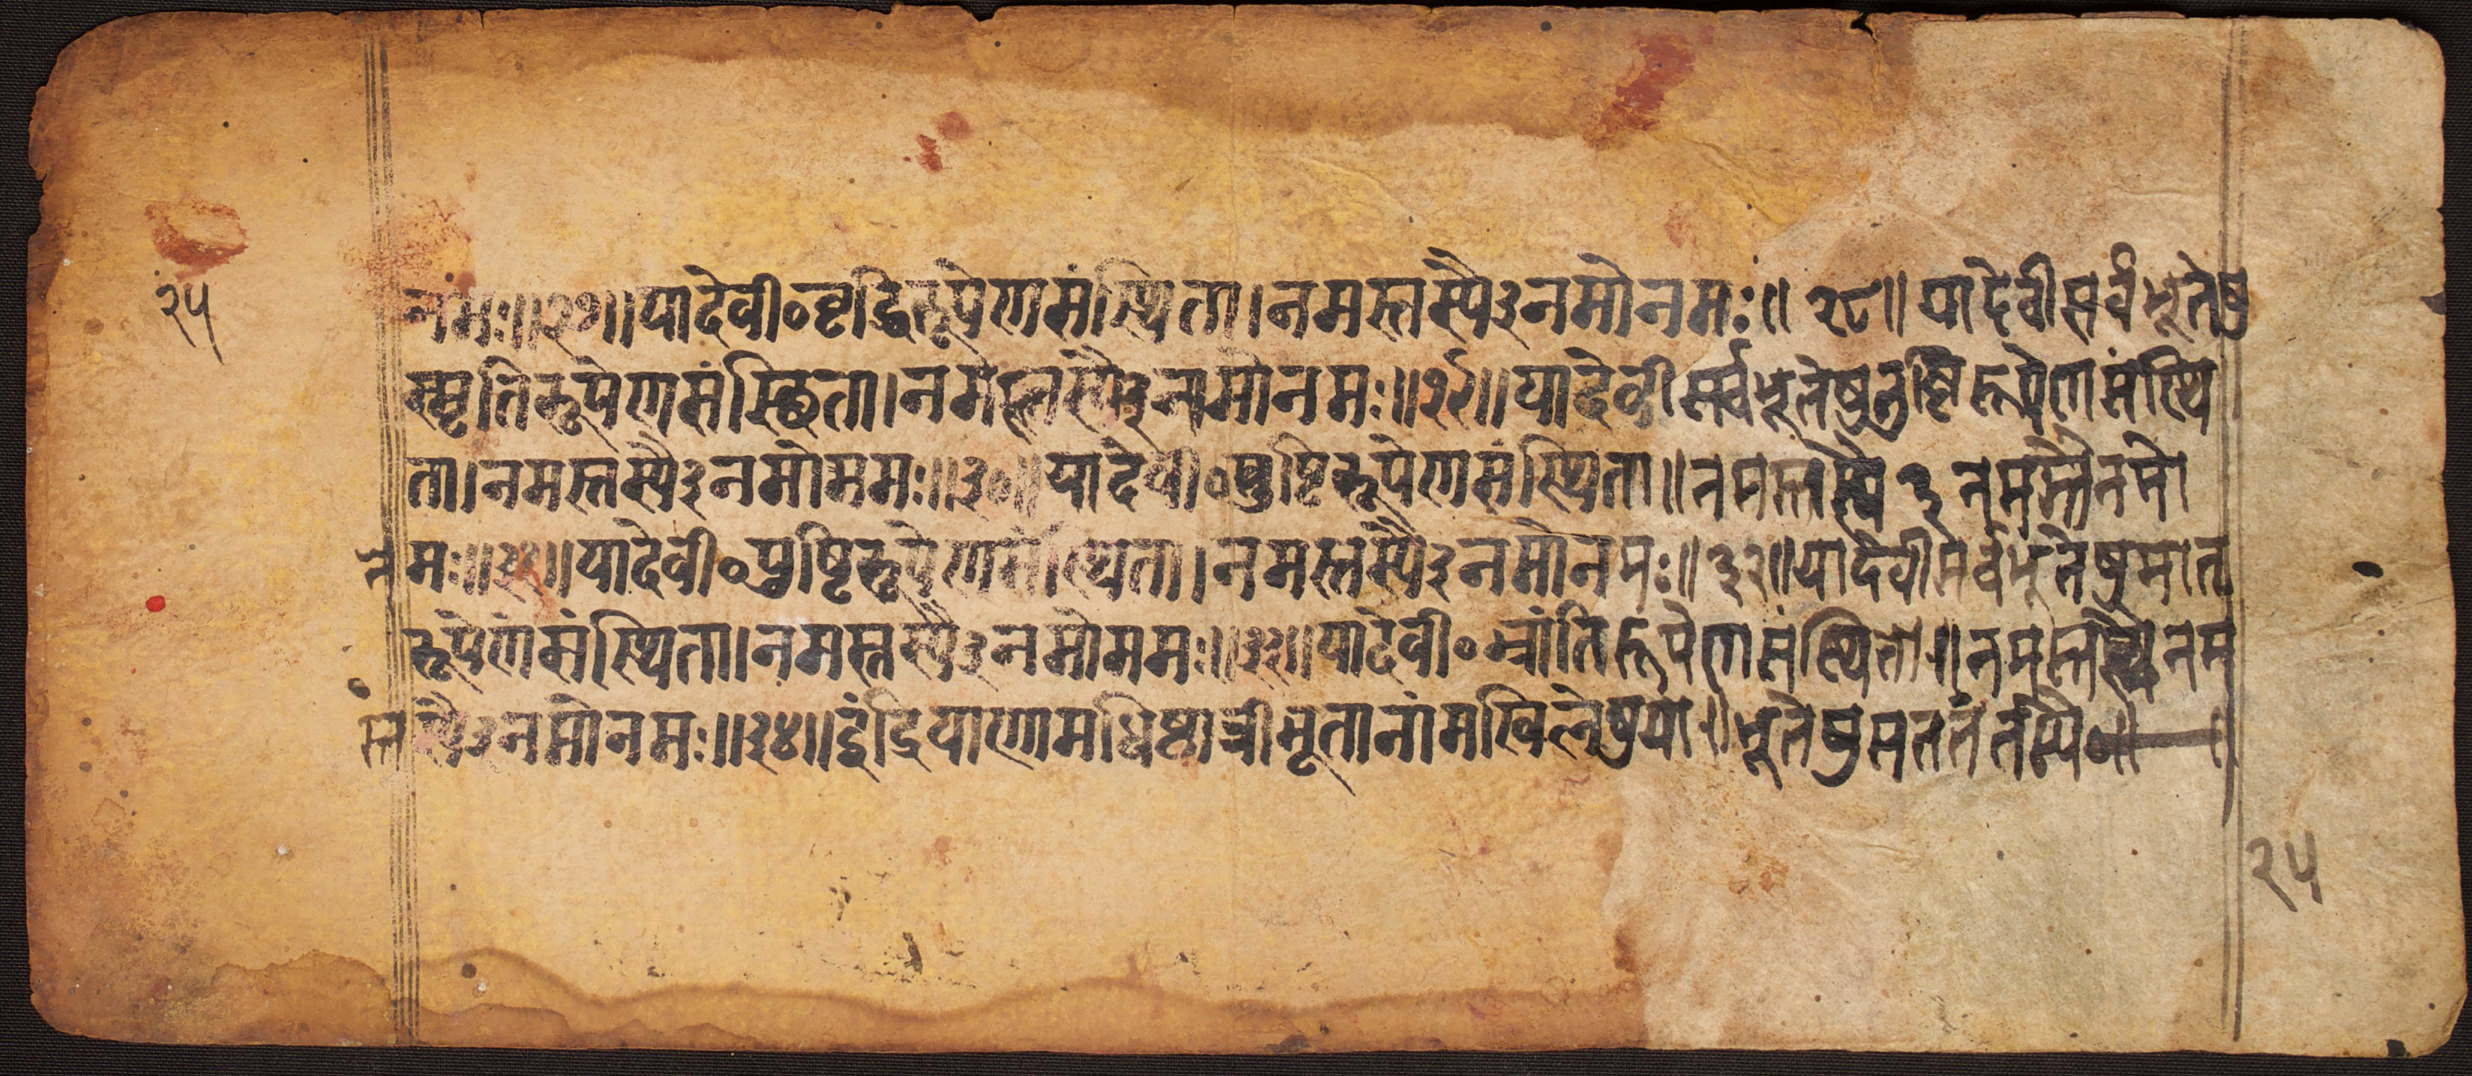 २५
नमः॥२७॥यादेवी०वृद्धिरूपेणसंस्थिता।नमस्तस्यै३नमोनमः॥२८॥यादेवीसर्वभूतेषु
स्मृतिरूपेणसंस्थिता।नमस्तस्यै३नमोनमः॥२९॥यादेवीसर्वभूतेषुतुष्टिरूपेणसंस्थि
ता।नमस्तस्यै३नमोममः॥३०॥यादेवी०पुष्टिरूपेणसंस्थिता॥नमस्तस्यै३नमस्तैनमो
नमः॥३१॥यादेवी०पुष्टिरूपेणसंस्थिता।नमस्तस्यै३नमोनमः॥३२॥यादेवीसर्वभूतेषुमातृ
रूपेणसंस्थिता।नमस्तस्यै३नमोममः॥३३॥यादेवी०भ्रांतिरूपेणसंस्थिता॥नमस्तस्यैनम
स्तस्यै३नमोनमः॥३४॥इंद्रियाणामधिष्ठात्रीभूतानांमखिलेषुया॥भूतेषुसततंतस्यै०॥
२५